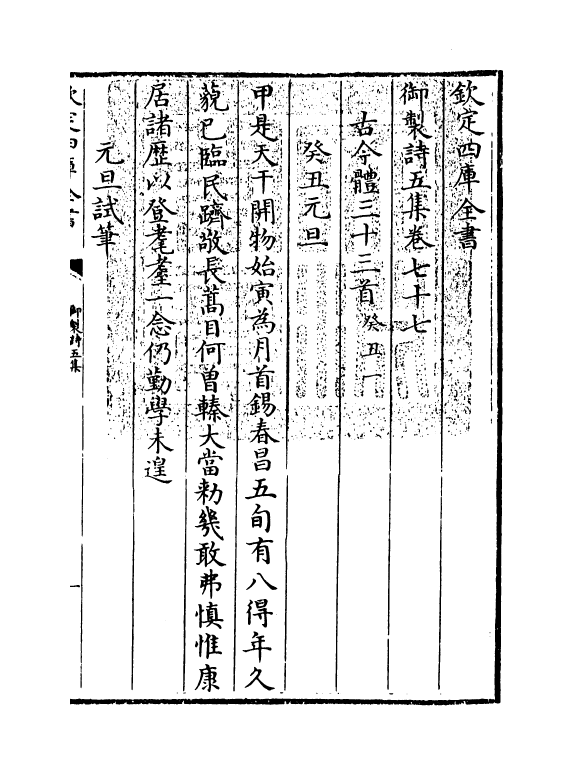 欽定四庫全書
御製詩五集卷七十七
古今體三十三首癸丑一
癸丑元旦
甲是天干開物始寅為月首錫春昌五旬有八得年久
藐已臨民躋敬長蒿目何曾轃大當勑幾敢弗慎惟康
居諸歴以登耄耋一念仍勤學未遑
元旦試筆
欽定四庫全書
御製詩五集
一